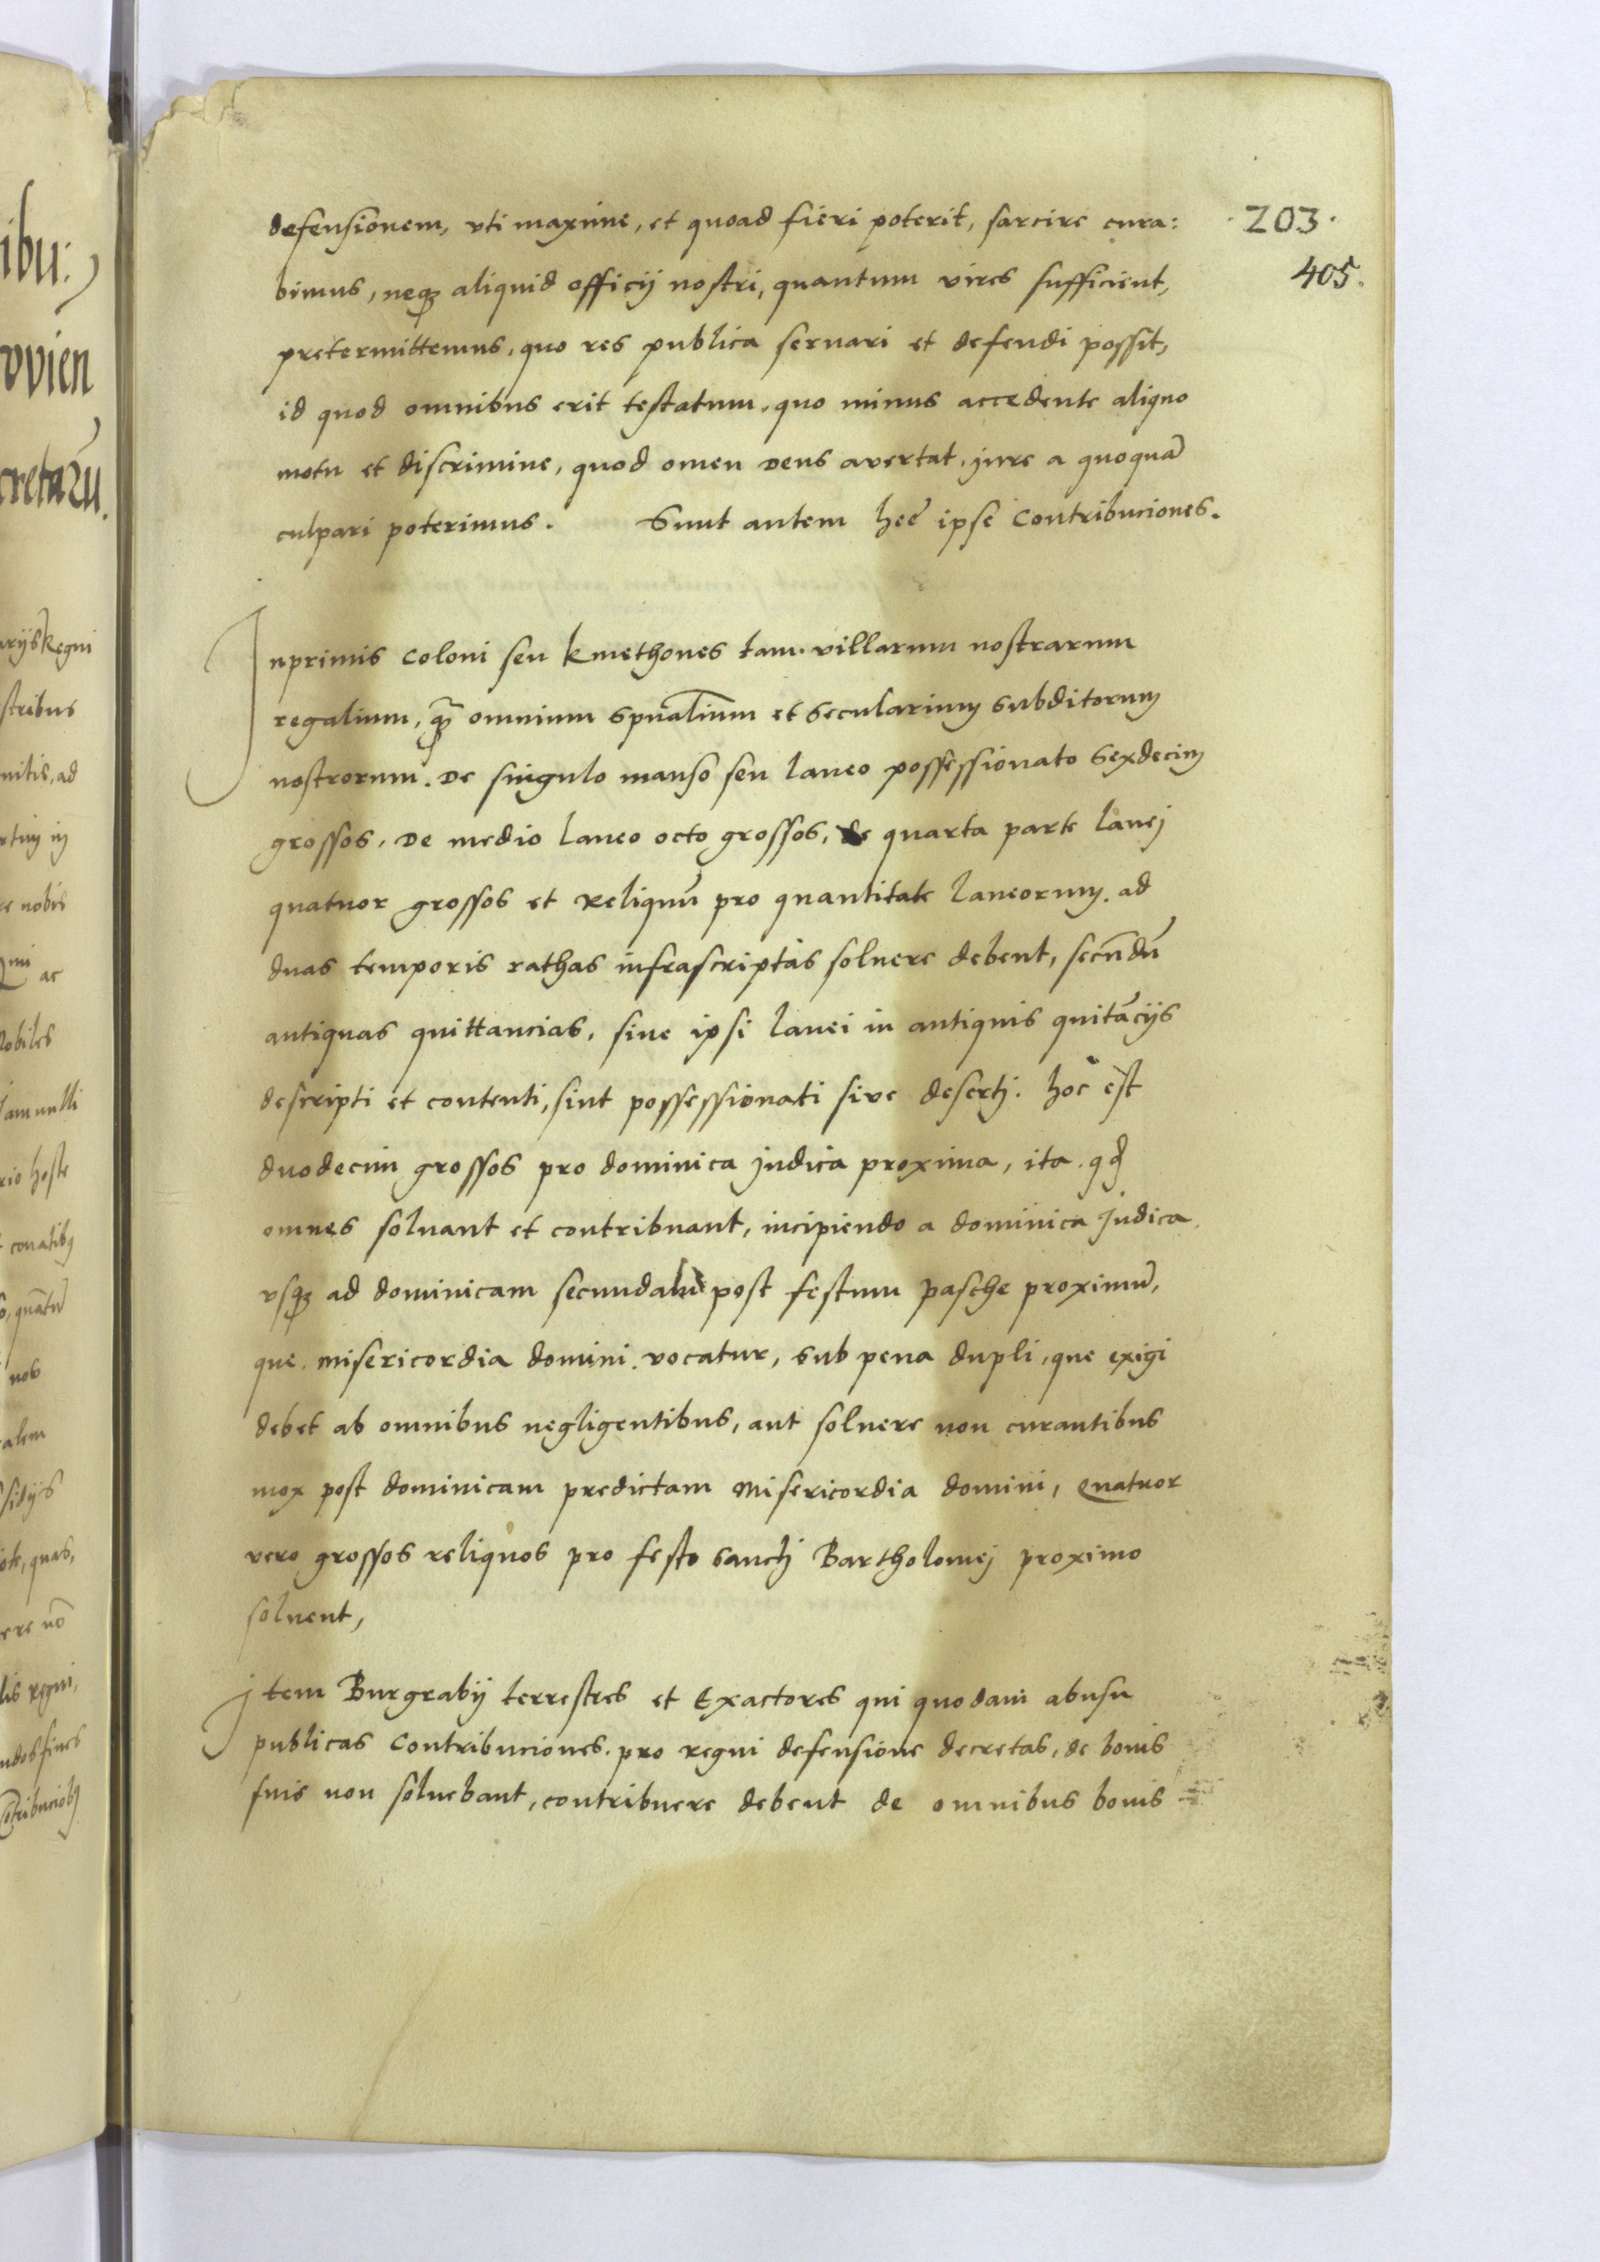 ·203·
405.
defensionem, vti maxime, et quoad fieri poterit, sarcire cura:
bimus, neq꜀ aliquid officij nostri, quantum vires sufficient,
pretermittemus, quo res publica seruari et defendi possit,
id quod omnibus erit testatum, quo minus accedente aliquo
motu et discrimine, quod omen Deus avertat, jure a quoquā
culpari poterimus. Sunt autem hec̄ ipse Contribuciones.
Inprimis Coloni seu kmethones tam villarum nostrarum
regalium, q̄ȝ omnium sp̄ualium et Secularium Subditorum
nostrorum. De singulo manso seu laneo possessionato Sexdecim
grossos, De medio laneo octo grossos, de quarta parte lanej
quatuor grossos et Reliquū pro quantitate laneorum, ad
duas temporis rathas infrascriptas soluere debent, secn̄dū
antiquas quittancias, siue ipsi lanei in antiquis quitācijs
descripti et contenti, sint possessionati sive desertj. hoc est
duodecim grossos pro dominica judica proxima, ita qđ
omnes soluant et contribuant, incipiendo a dominica Judica
vsqȝ ad dominicam secundam post festum pasche proximū,
que Misericordia domini vocatur, sub pena dupli, que exigi
debet ab omnibus negligentibus, aut soluere non curantibus
mox post dominicam predictam Misericordia domini, Quatuor
vero grossos reliquos pro festo sanctj Bartholomej proximo
soluent,
Jtem Burgrabij terrestres et Exactores qui quodam abusu
publicas Contribuciones pro regni defensione decretas, de bonis
suis non soluebant, contribuere debent de omnibus bonis